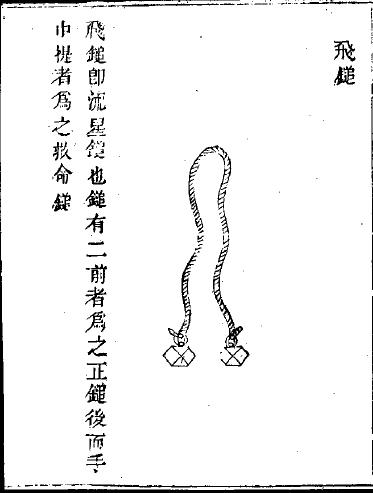 飛鎚
飛鎚即流星鎚也鎚有二前者爲之正鎚後面手
中提者爲之救命鎚